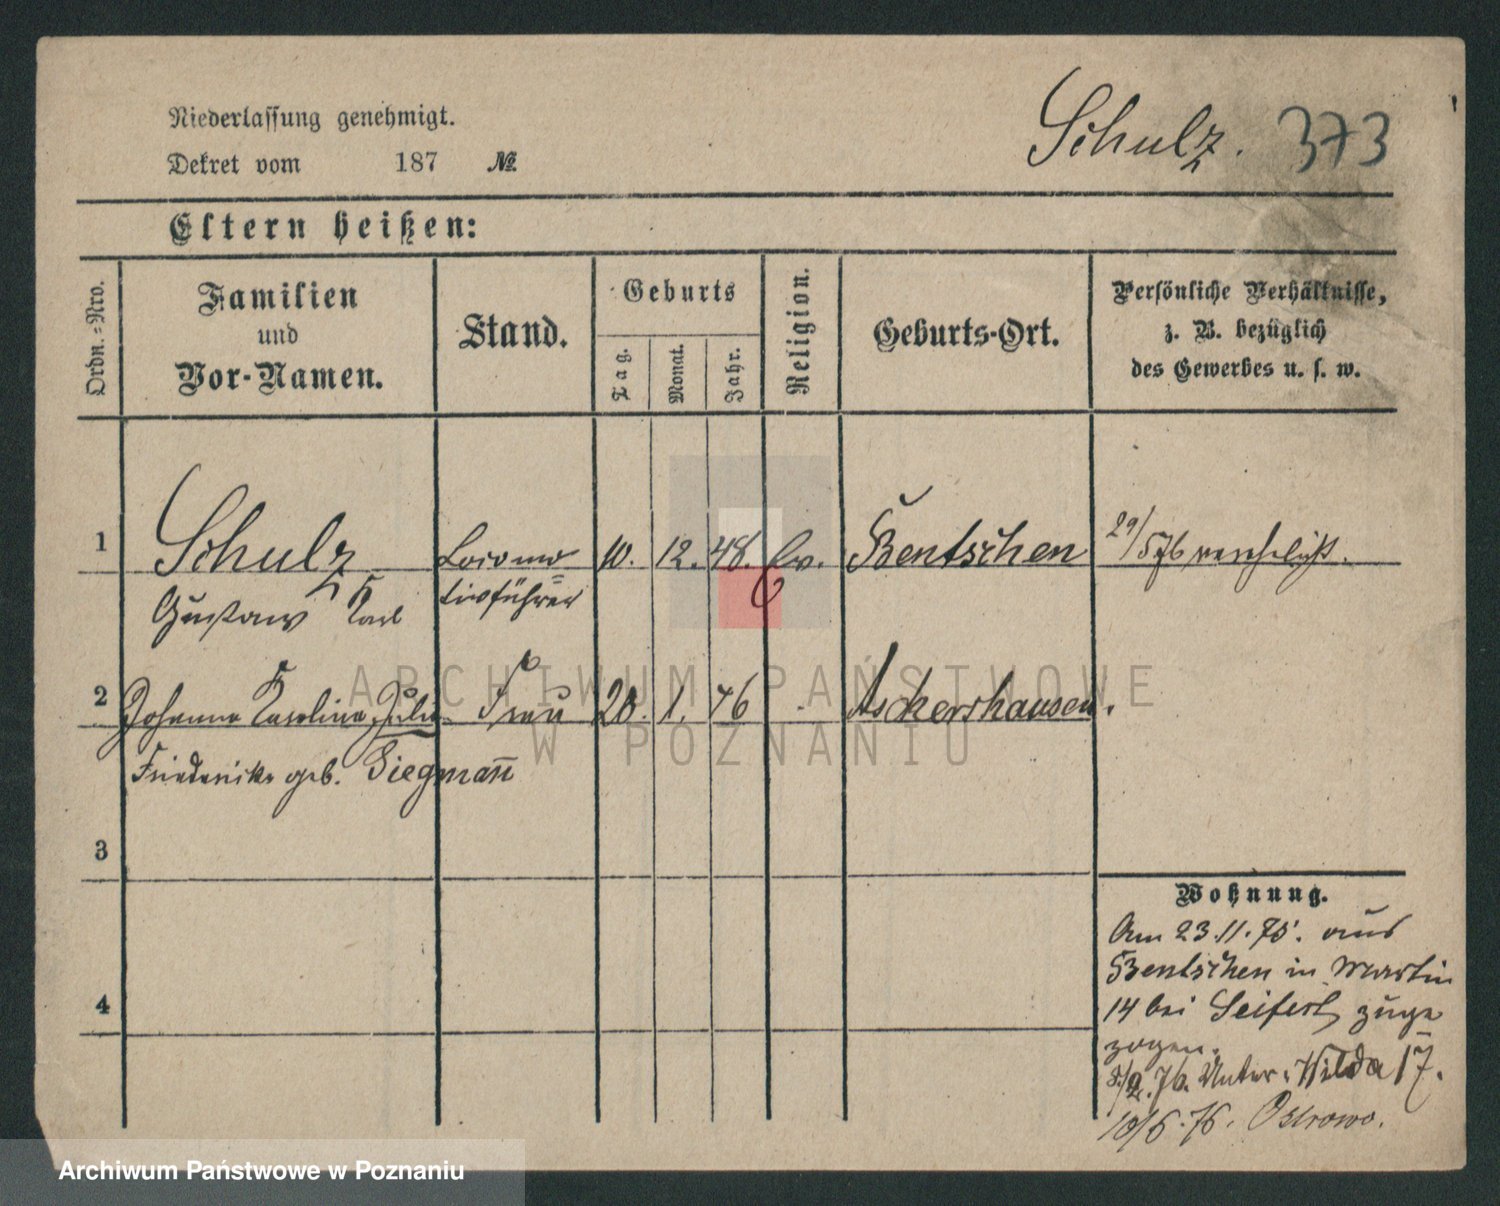 Niederlassung genehmigt.
Dekret vom 187 №
Schulz. 373
Eltern heißen:
Ordn.-Nro.
Familien und Vor-Namen.
Stand.
Geburts
Tag.
Monat.
Jahr.
Religion.
Geburts-Ort.
Persönliche Verhältnisse,
z. B. bezüglich
des Gewerbes u. s. w.
1 Schulz Locomo= 10. 12. 48. Ev. Bentschen 29/5 76 verehelicht.
Gustav Karl tivführer
2 Johanna Karolina Julie Frau 20. 1. 76 Ackershausen.
Friederike geb. Siegmann
3
4
Wohnung.
Am 23.11.75. aus
Bentschen in Martin
14 bei Seifert zuge
zogen.
8/2. 76. Unter-Wilda 17.
10/6. 76. Ostrowo.
ARCHIWUM PAŃSTWOWE
W POZNANIU
Archiwum Państwowe w Poznaniu